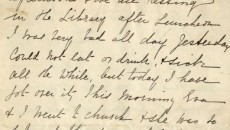 we are resting
in the Library after Luncheon
I was very bad all day yesterday
Could not eat or drink, & sick
all the while, but today I have
got over it. This morning Eva
& I went to church & she was to